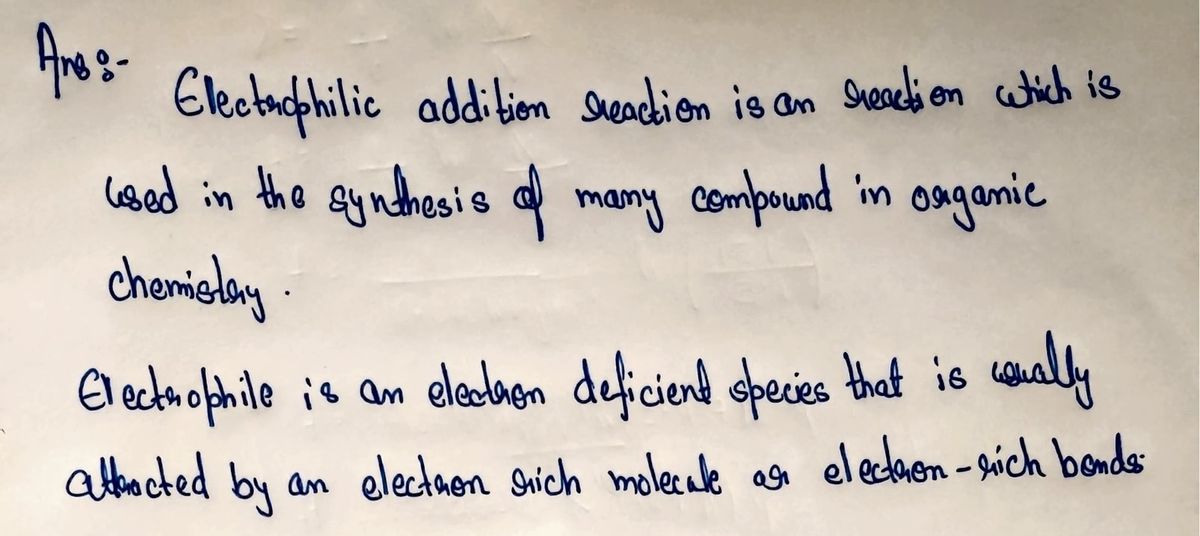 Ans :-
Electrophilic addition reaction is an reaction which is
used in the synthesis of many compound in organic
chemistry.
Electrophile is an electron deficient species that is usually
attracted by an electron rich molecule or electron-rich bonds.